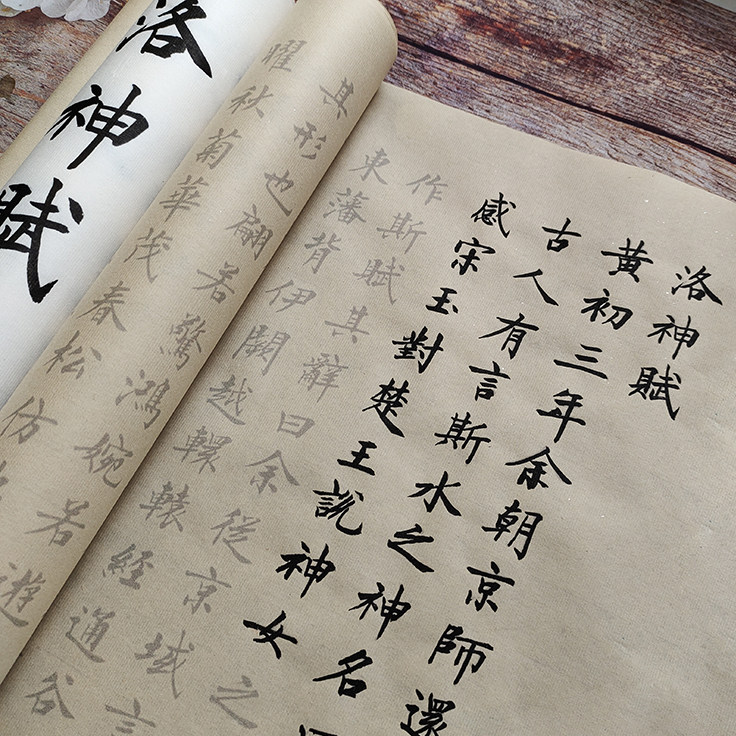 洛神賦
黄初三年余朝京師還
古人有言斯水之神名
感宋玉對楚王說神女之
作斯賦其辭曰余從京域言
東藩背伊闕越轘轅經通谷
其形也翩若驚鴻婉若遊
曜秋菊華茂春松仿
洛神賦